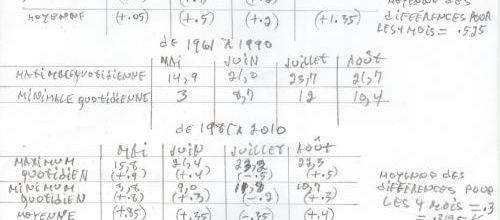 MOYENNE (+.05) (+.5) (+.2) (+1.35)
MOYENNE DES
DIFFERENCES POUR
LES 4 MOIS = .525
DE 1961 À 1990
MAI JUIN JUILLET AOÛT
MAXIMALE QUOTIDIENNE 14,9 21,0 23,7 21,7
MINIMALE QUOTIDIENNE 3 8,7 12 10,4
DE 1981 À 2010
MAI JUIN JUILLET AOÛT
MAXIMUM 15,8 21,4 22,3
QUOTIDIEN (+.9) (+.4) (-.5) (+.5)
MINIMUM 3,8 9,0 10,7
QUOTIDIEN (+.8) (+.3) (-.2) (+.3)
MOYENNE (+.85) (+.35) (-.35) (+.4)
MOYENNE DES
DIFFERENCES POUR
LES 4 MOIS = .3